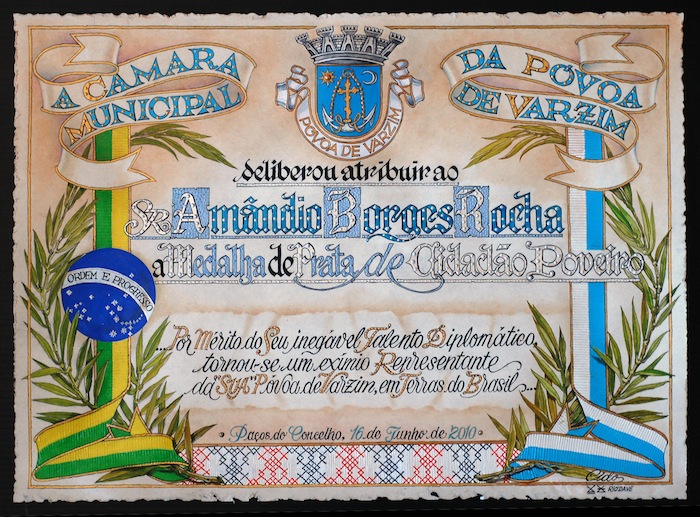 A CÂMARA
MUNICIPAL
DA PÓVOA
DE VARZIM
PÓVOA DE VARZIM
deliberou atribuir ao
Sr. Amândio Borges Rocha
a Medalha de Prata de Cidadão Poveiro
ORDEM E PROGRESSO
... Por Mérito do Seu inegável Talento Diplomático,
tornou-se um exímio Representante
da "SUA" Póvoa de Varzim, em Terras do Brasil ...
Paços do Concelho, 16 de Junho de 2010
RIODAVE